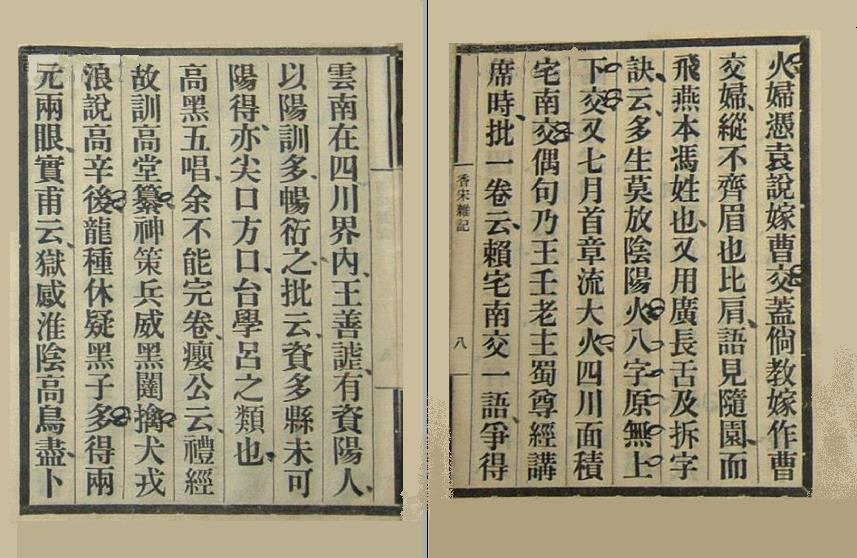 火婦憑袁說嫁曹交蓋倘教嫁作曹
交婦縱不齊眉也比肩語見隨園而
飛燕本馮姓也又用廣長舌及拆字
訣云多生莫放陰陽火八字原無上
下交又七月首章流大火四川面積
宅南交偶句乃王壬老主蜀尊經講
席時批一卷云賴宅南交一語爭得
香宋雜記
八
雲南在四川界內王善謔有資陽人
以陽訓多暢衍之批云資多縣未可
陽得亦尖口方口台學呂之類也
高黑五唱余不能完卷癭公云禮經
故訓高堂纂神策兵威黑闥擒犬戎
浪說高辛後龍種休疑黑子多得兩
元兩眼實甫云獄慼淮陰高鳥盡卜